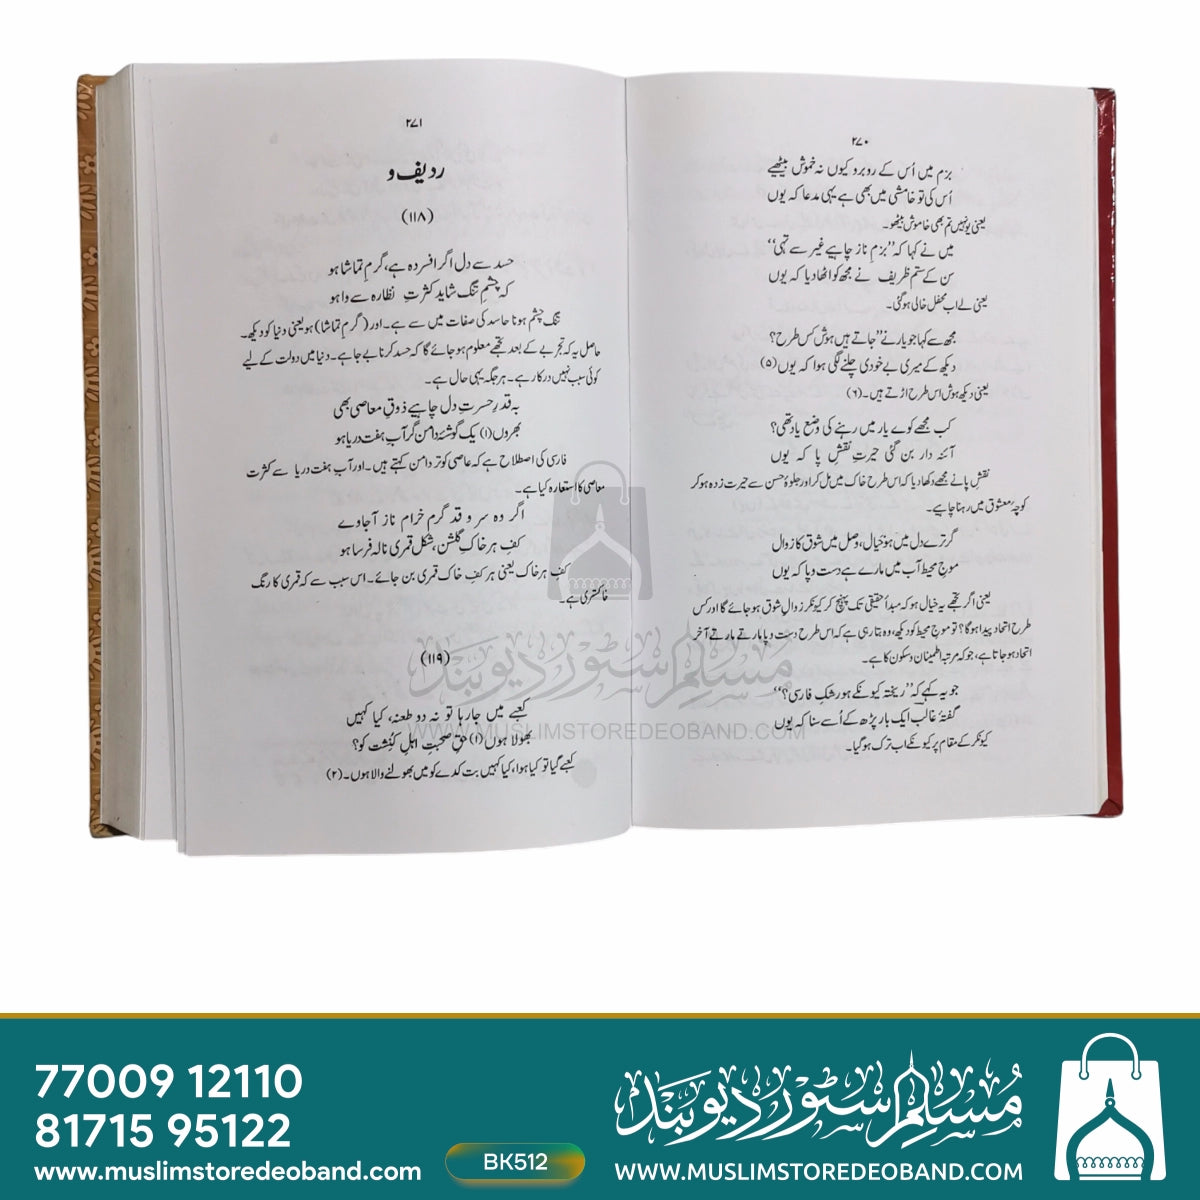 ۲۷۰
بزم میں اُس کے روبرو کیوں نہ خموش بیٹھیے
اُس کی تو خامشی میں بھی ہے یہی مدعا کہ یوں
یعنی یونہیں تم بھی خاموش بیٹھو۔
میں نے کہا کہ ”بزمِ ناز چاہیے غیر سے تہی“
سن کے ستم ظریف نے مجھ کو اٹھا دیا کہ یوں
یعنی لے اب محفل خالی ہوگئی۔
مجھ سے کہا جو یار نے ”جاتے ہیں ہوش کس طرح؟
دیکھ کے میری بے خودی چلنے لگی ہوا کہ یوں (۵)
یعنی دیکھ ہوش اس طرح اڑتے ہیں۔ (۶)
کب مجھے کوے یار میں رہنے کی وضع یاد تھی؟
آئنہ دار بن گئی حیرتِ نقشِ پا کہ یوں
نقشِ پا نے مجھے دکھا دیا کہ اس طرح خاک میں مل کر اور جلوۂ حسن سے حیرت زدہ ہو کر
کوچۂ معشوق میں رہنا چاہیے۔
گر ترے دل میں ہو خیال، وصل میں شوق کا زوال
موجِ محیطِ آب میں مارے ہے دست و پا کہ یوں
یعنی اگر تجھے یہ خیال ہو کہ مبدأ حقیقی تک پہنچ کر کیونکر زوالِ شوق ہو جائے گا اور کس
طرح اتحاد پیدا ہوگا؟ تو موجِ محیط کو دیکھ، وہ بتا رہی ہے کہ اس طرح دست و پا مارتے مارتے آخر
اتحاد ہو جاتا ہے، جو کہ مرتبہ اطمینان و سکون کا ہے۔
جو یہ کہے کہ ”ریختہ کیونکے ہو رشکِ فارسی؟“
گفتۂ غالب ایک بار پڑھ کے اُسے سنا کہ یوں
کیونکر کے مقام پر کیونکے اب ترک ہوگیا۔
۲۷۱
ردیف و
(۱۱۸)
حسد سے دل اگر افسردہ ہے، گرمِ تماشا ہو
کہ چشمِ تنگ شاید کثرتِ نظارہ سے وا ہو
تنگ چشم ہونا حاسد کی صفات میں سے ہے۔ اور (گرمِ تماشا) ہو یعنی دنیا کو دیکھ۔
حاصل یہ کہ تجربے کے بعد تجھے معلوم ہو جائے گا کہ حسد کرنا بے جا ہے۔ دنیا میں دولت کے لیے
کوئی سبب نہیں درکار ہے۔ ہر جگہ یہی حال ہے۔
بہ قدرِ حسرتِ دل چاہیے ذوقِ معاصی بھی
بھروں (۱) یک گوشۂ دامن گر آبِ ہفت دریا ہو
فارسی کی اصطلاح ہے کہ عاصی کو تر دامن کہتے ہیں۔ اور آبِ ہفت دریا سے کثرت
معاصی کا استعارہ کیا ہے۔
اگر وہ سرو قد گرمِ خرامِ ناز آجاوے
کفِ ہر خاکِ گلشن، شکل قمری نالہ فرسا ہو
کفِ ہر خاک یعنی ہر کفِ خاک قمری بن جائے۔ اس سبب سے کہ قمری کا رنگ
خاکستری ہے۔
(۱۱۹)
کعبے میں جا رہا تو نہ دو طعنہ، کیا کہیں
بھولا ہوں (۱) حقِ صحبتِ اہلِ کُنِشت کو؟
کعبے گیا تو کیا ہوا، کیا کہیں بت کدے کو میں بھولنے والا ہوں۔ (۲)
مسلم سٹور دیوبند
WWW.MUSLIMSTOREDEOBAND.COM
77009 12110
81715 95122
www.muslimstoredeoband.com
BK512
مسلم سٹور دیوبند
WWW.MUSLIMSTOREDEOBAND.COM